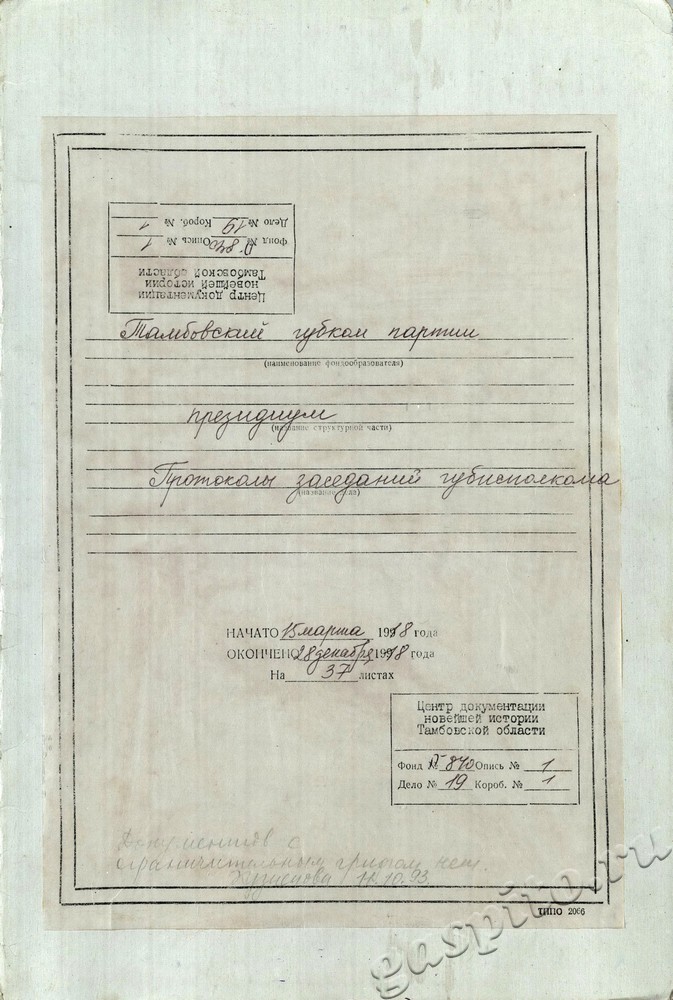 Центр документации
новейшей истории
Тамбовской области
Фонд № П-840 Опись № 1
Дело № 19 Короб. № 1
Тамбовский губком партии
(наименование фондообразователя)
президиум
(название структурной части)
Протоколы заседаний губисполкома
(название дела)
НАЧАТО 15 марта 1918 года
ОКОНЧЕНО 28 декабря 1918 года
На 37 листах
Центр документации
новейшей истории
Тамбовской области
Фонд № П-840 Опись № 1
Дело № 19 Короб. № 1
Документов с
ограничительным грифом нет.
10.93
ТИПО 2066
gaspito.ru